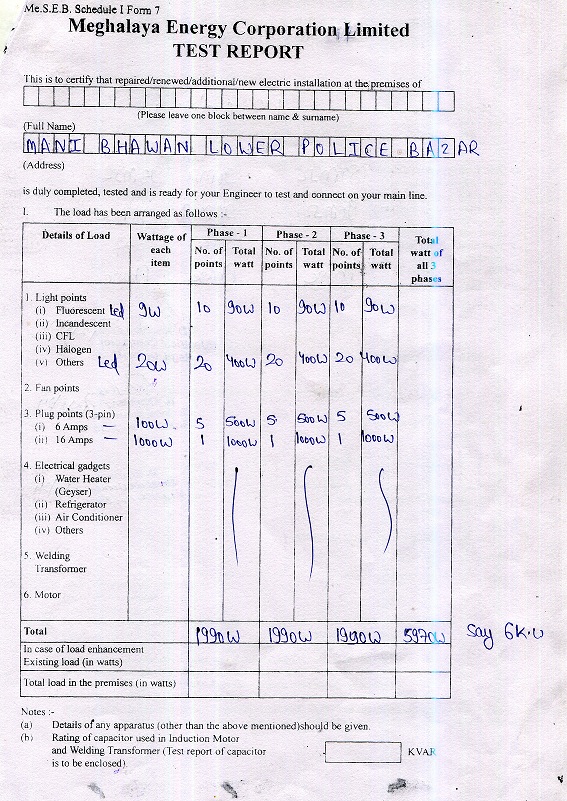 Me.S.E.B. Schedule I Form 7
Meghalaya Energy Corporation Limited
TEST REPORT
This is to certify that repaired/renewed/additional/new electric installation at the premises of
(Please leave one block between name & surname)
(Full Name)
MANI BHAWAN LOWER POLICE BAZAR
(Address)
is duly completed, tested and is ready for your Engineer to test and connect on your main line.
I. The load has been arranged as follows :-
Details of Load Wattage of each item Phase - 1 Phase - 2 Phase - 3 Total watt of all 3 phases
No. of points Total watt No. of points Total watt No. of points Total watt
1. Light points
(i) Fluorescent Led 9W 10 90W 10 90W 10 90W
(ii) Incandescent
(iii) CFL
(iv) Halogen
(v) Others Led 20W 20 400W 20 400W 20 400W
2. Fan points
3. Plug points (3-pin)
(i) 6 Amps — 100W 5 500W 5 500W 5 500W
(ii) 16 Amps — 1000W 1 1000W 1 1000W 1 1000W
4. Electrical gadgets
(i) Water Heater
(Geyser)
(ii) Refrigerator
(iii) Air Conditioner
(iv) Others
5. Welding
Transformer
6. Motor
Total 1990W 1990W 1990W 5970W Say 6K.W
In case of load enhancement
Existing load (in watts)
Total load in the premises (in watts)
Notes :-
(a) Details of any apparatus (other than the above mentioned)should be given.
(b) Rating of capacitor used in Induction Motor
and Welding Transformer (Test report of capacitor KVAR
is to be enclosed).